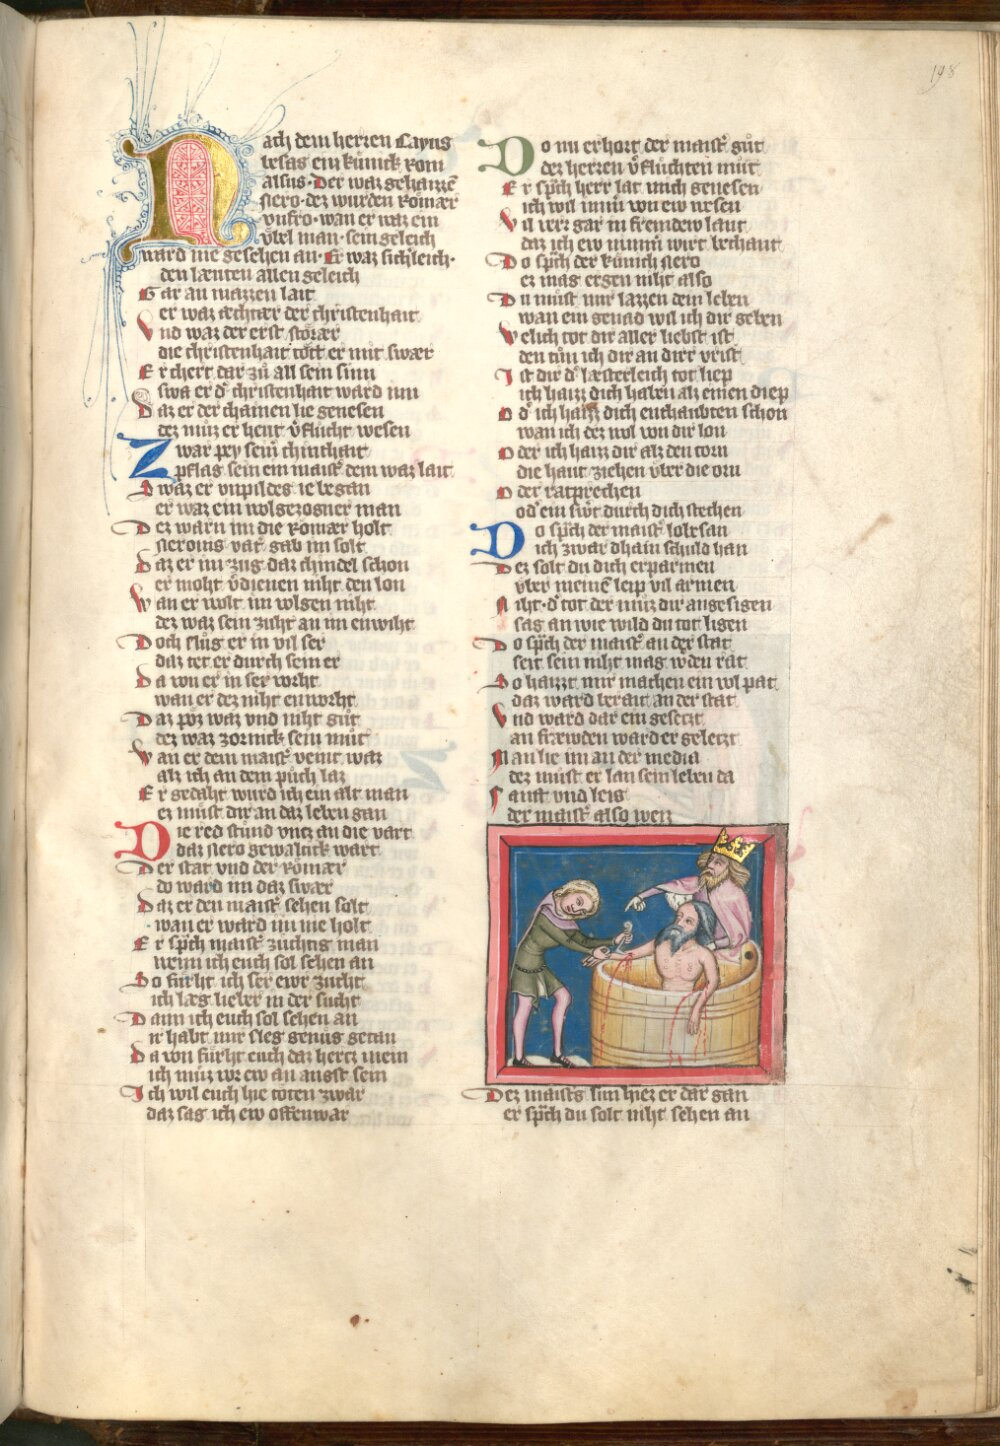 198
Nach dem herren Cayus
besas ein künick Rom
alsus. Der waz gehaizzē
Nero. dez wurden Romær
vnfro. wan er waz ein
v̈bel man. sein geleich
ward nie gesehen an. Er waz sichleich.
den læuten allen geleich
Gar an mazzen lait
er waz æchtær der christenhait
Vnd waz der erst störær
die christenhait tött er mit swær
Er chert dar zů all sein sinn
swa er d' christenhait ward inn
Daz er der chainen lie genesen
dez můz er heut v̄flůcht wesen
Zwar pey sein' chinthait
pflag sein ein maist' dem waz lait
Swaz er vnpildes ie began
er waz ein wolgezogner man
Dez warn im die Romær holt
Neroins vat' gab im solt
Daz er im zug daz chindel schon
er moht v̄dienen niht den lon
Wan er wolt im volgen niht
dez waz sein zuht an im enwiht
Doch slůg er in vil ser
daz tet er durch sein er
Da von er in ser vorht
wan er dez niht enworht
Daz pöz waz vnd niht gůt
dez waz zornick sein můt
Wan er dem maist' veint waz
alz ich an dem půch laz
Er gedaht wurd ich ein alt man
ez můst dir an daz leben gan
Die red stůnd vntz an die vart
daz Nero gewaltick wart
Der stat vnd der Romær
do ward im daz swær
Daz er den maist' sehen solt
wan er ward im nie holt
Er sp̄ch maist' züchtig man
wenn ich euch sol sehen an
So fürht ich ser ewr zucht
ich læg lieber in der sucht
Dann ich euch sol sehen an
ir habt mir sleg genůg getan
Da von fürht euch daz hertz mein
ich můz vor ew an angst sein
Ich wil euch hie töten zwar
daz sag ich ew offenwar
Do nu erhort der maist' gůt
dez herren v̄flůchten můt
Er sp̄ch herr lat mich genesen
ich wil im̄' von ew wesen
Vil verr gar in fremdew lant
daz ich ew nim̄' wirt bechant
Do sp̄ch der künich Nero
ez mag ergen niht also
Du můst mir lazzen dein leben
wan ein genad wil ich dir geben
Welich tot dir aller liebst ist
den tůn ich dir an dirr vrist
Ist dir d' læsterleich tot liep
ich haizz dich hahen alz einen diep
Od' ich haizz dich enthaubten schon
wan ich dez wol von dir lon
Oder ich haiz dir alz den torn
die haut ziehen v̈ber die orn
Oder ratprechen
od' ein swert durch dich stechen
Do sp̄ch der maist' lobsan
ich zwar dhain schuld han
Dez solt du dich erparmen
v̈ber meinē leip vil armen
Niht. d' tot der můz dir angesigen
sag an wie wild du tot ligen
Do sp̄ch der maist' an der stat
seit sein niht mag w'den rat
So haizzt mir machen ein wl pat
daz ward berait an der stat
Vnd ward dar ein gesetzt
an fræwden ward er geletzt
Man lie im an der median
dez můst er lan sein leben da
Sanft vnd leis
der maist' also weiz
Dez maist's sun hiez er dar gan
er sp̄ch du solt niht sehen an